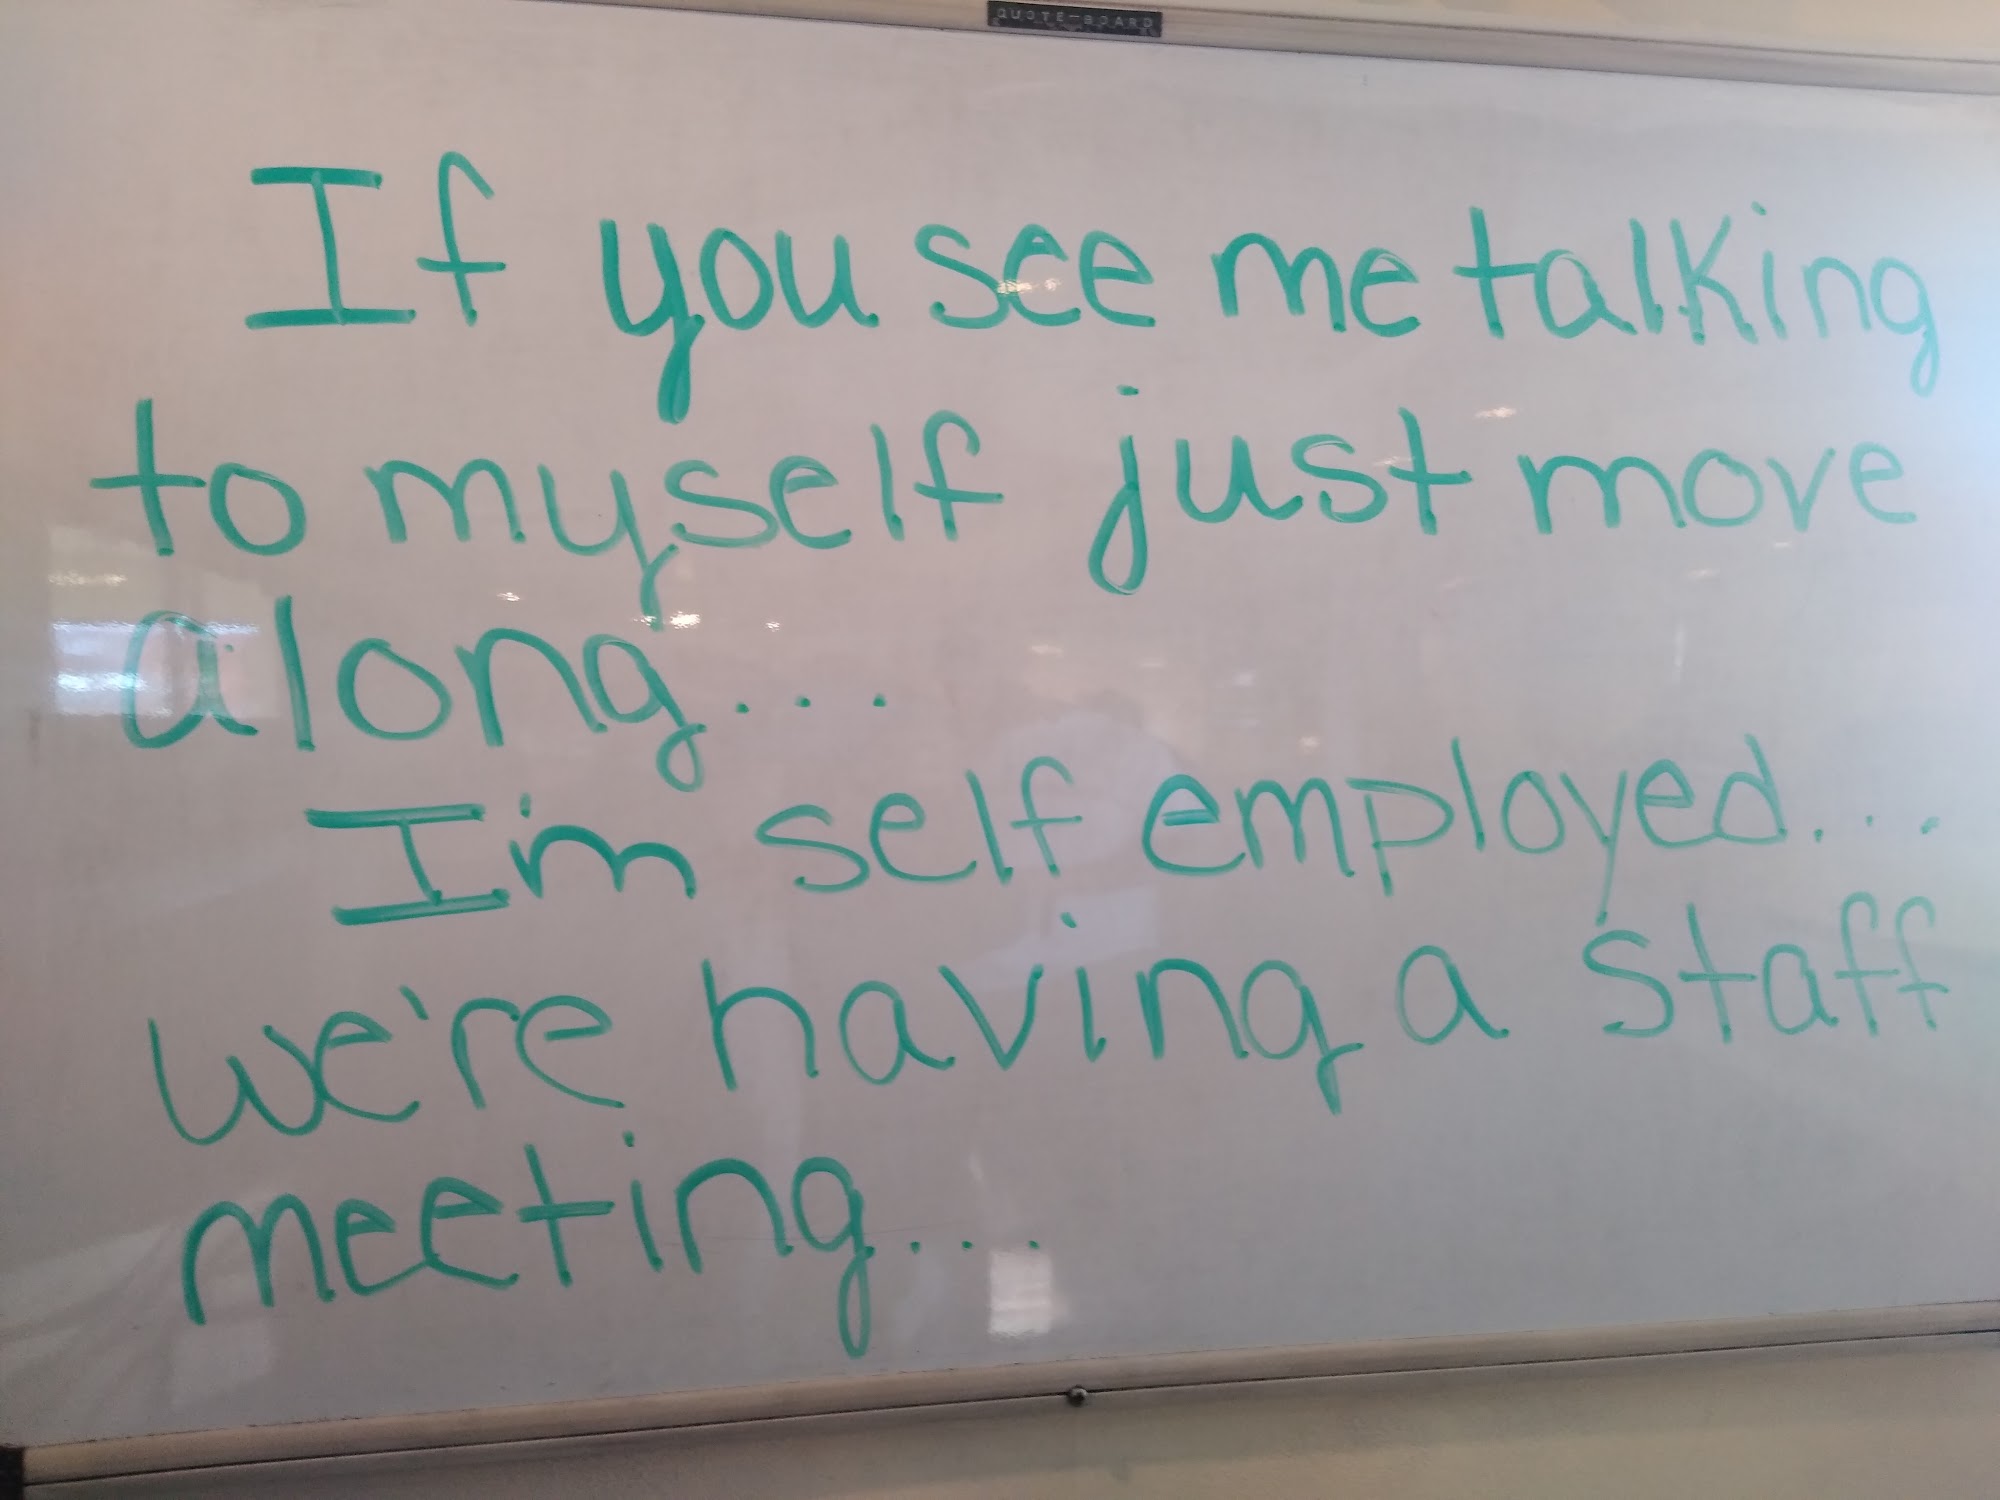 QUOTE-BOARD
If you see me talking
to myself just move
along...
I'm self employed...
we're having a staff
meeting...